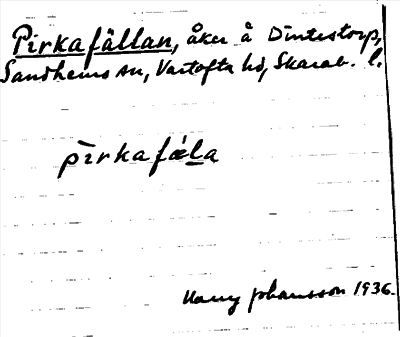 Pirkafällan, åker å Dintestorp,
Sandhems sn, Vartofta hd, Skarab. l.
pi̅rkafǽl̲a
Harry Johansson 1936.